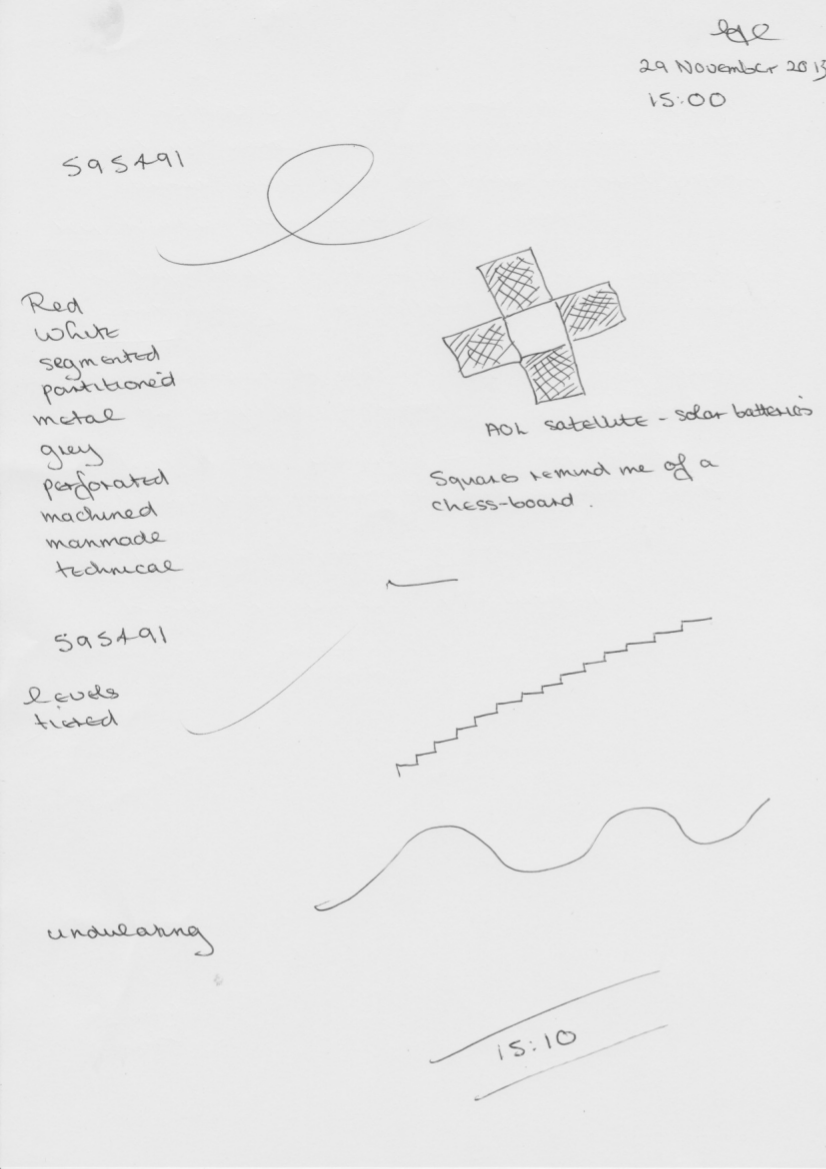 29 November 2013
15:00
595491
Red
White
segmented
partitioned
metal
grey
perforated
machined
manmade
technical
AOL satellite - solar batteries
Squares remind me of a
chess-board.
595491
levels
tiered
undulating
15:10